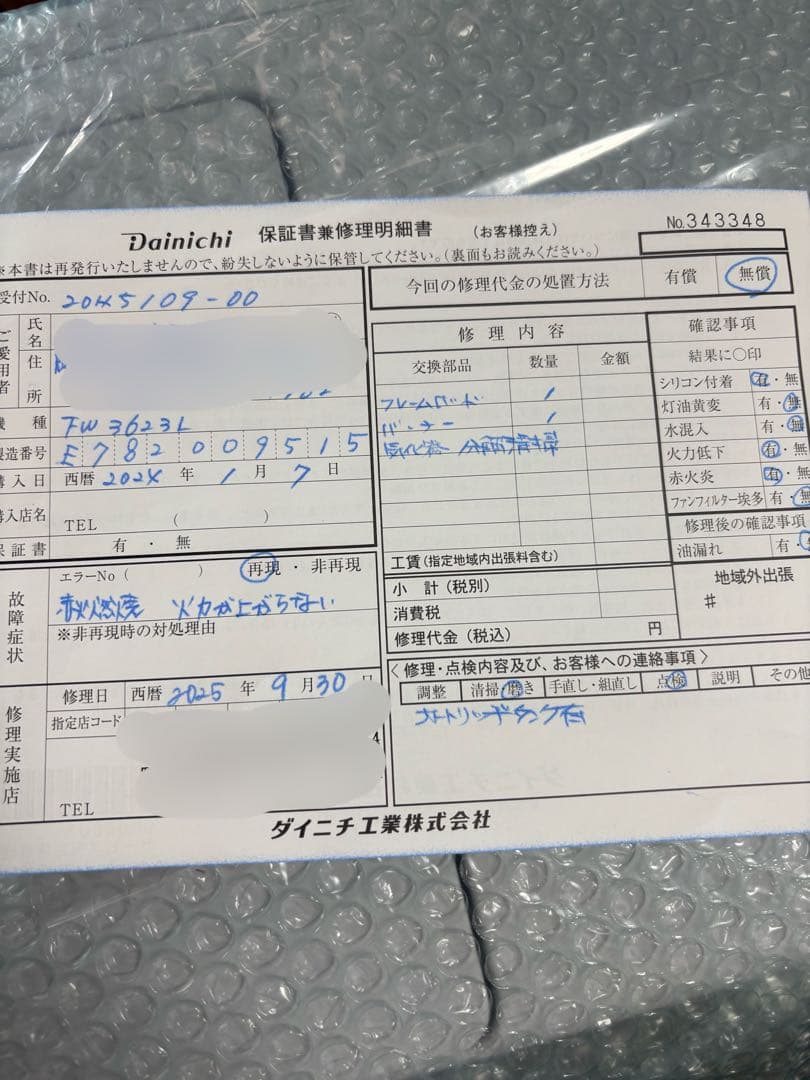 Dainichi 保証書兼修理明細書 (お客様控え) No.343348
※本書は再発行いたしませんので、紛失しないように保管してください。(裏面もお読みください。)
受付No. 2045109-00
今回の修理代金の処置方法 有償 無償
ご愛用者
氏名
住所
機種 FW3623L
製造番号 E782009515
購入日 西暦 2024 年 1 月 7 日
購入店名
TEL ( )
保証書 有・無
修理内容
交換部品 数量 金額
フレームロッド 1
バーナー 1
気化器 分解清掃
工賃(指定地域内出張料含む)
小計(税別)
消費税
修理代金(税込) 円
確認事項
結果に○印
シリコン付着 有・無
灯油黄変 有・無
水混入 有・無
火力低下 有・無
赤火炎 有・無
ファンフィルター埃多 有・無
修理後の確認事項
油漏れ 有・
地域外出張
#
故障症状
エラーNo( ) 再現・非再現
赤火燃焼 火力が上がらない
※非再現時の対処理由
修理実施店
修理日 西暦 2025 年 9 月 30 日
指定店コード
4
TEL
〈修理・点検内容及び、お客様への連絡事項〉
調整 清掃・磨き 手直し・組直し 点検 説明 その他
カートリッジタンク有
ダイニチ工業株式会社